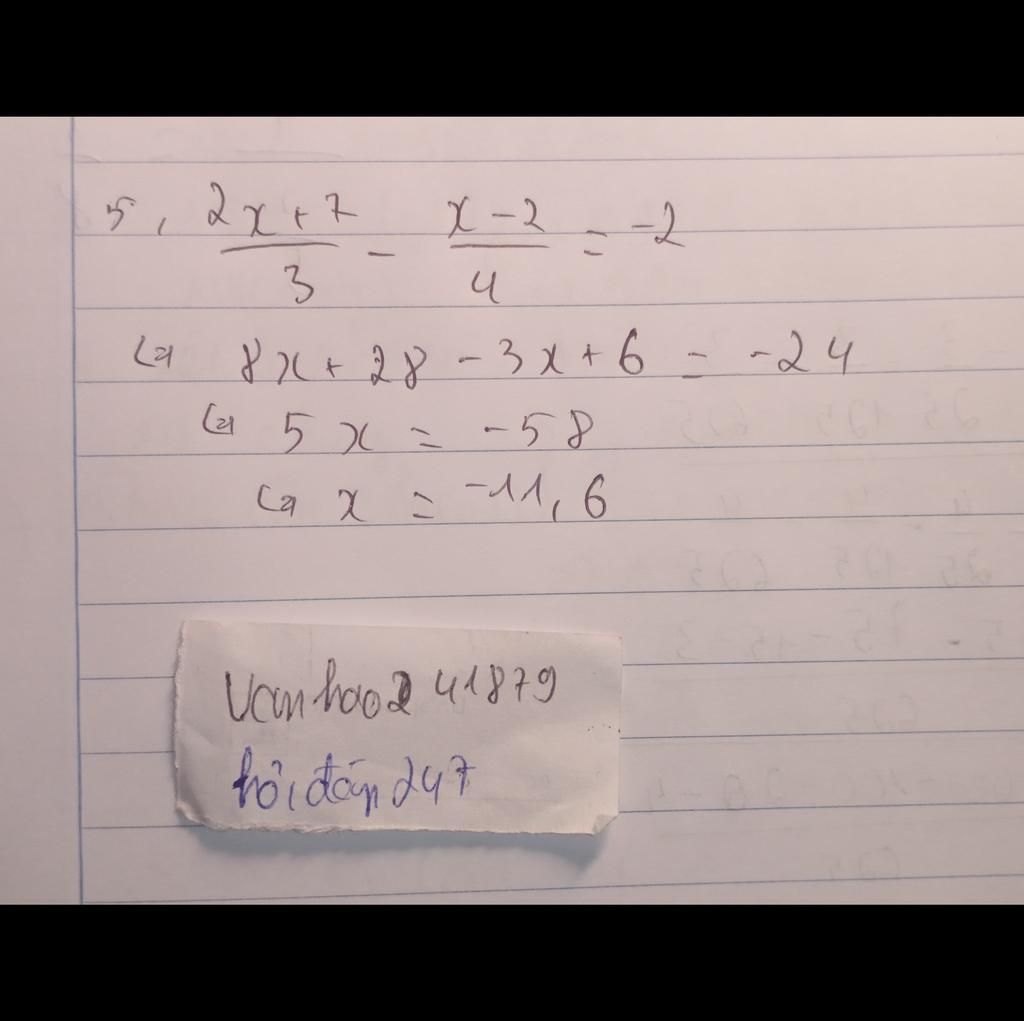 5, \frac{2x+7}{3} - \frac{x-2}{4} = -2
⇔ 8x + 28 - 3x + 6 = -24
⇔ 5x = -58
⇔ x = -11,6
Vanhao241879
hỏi đáp 247